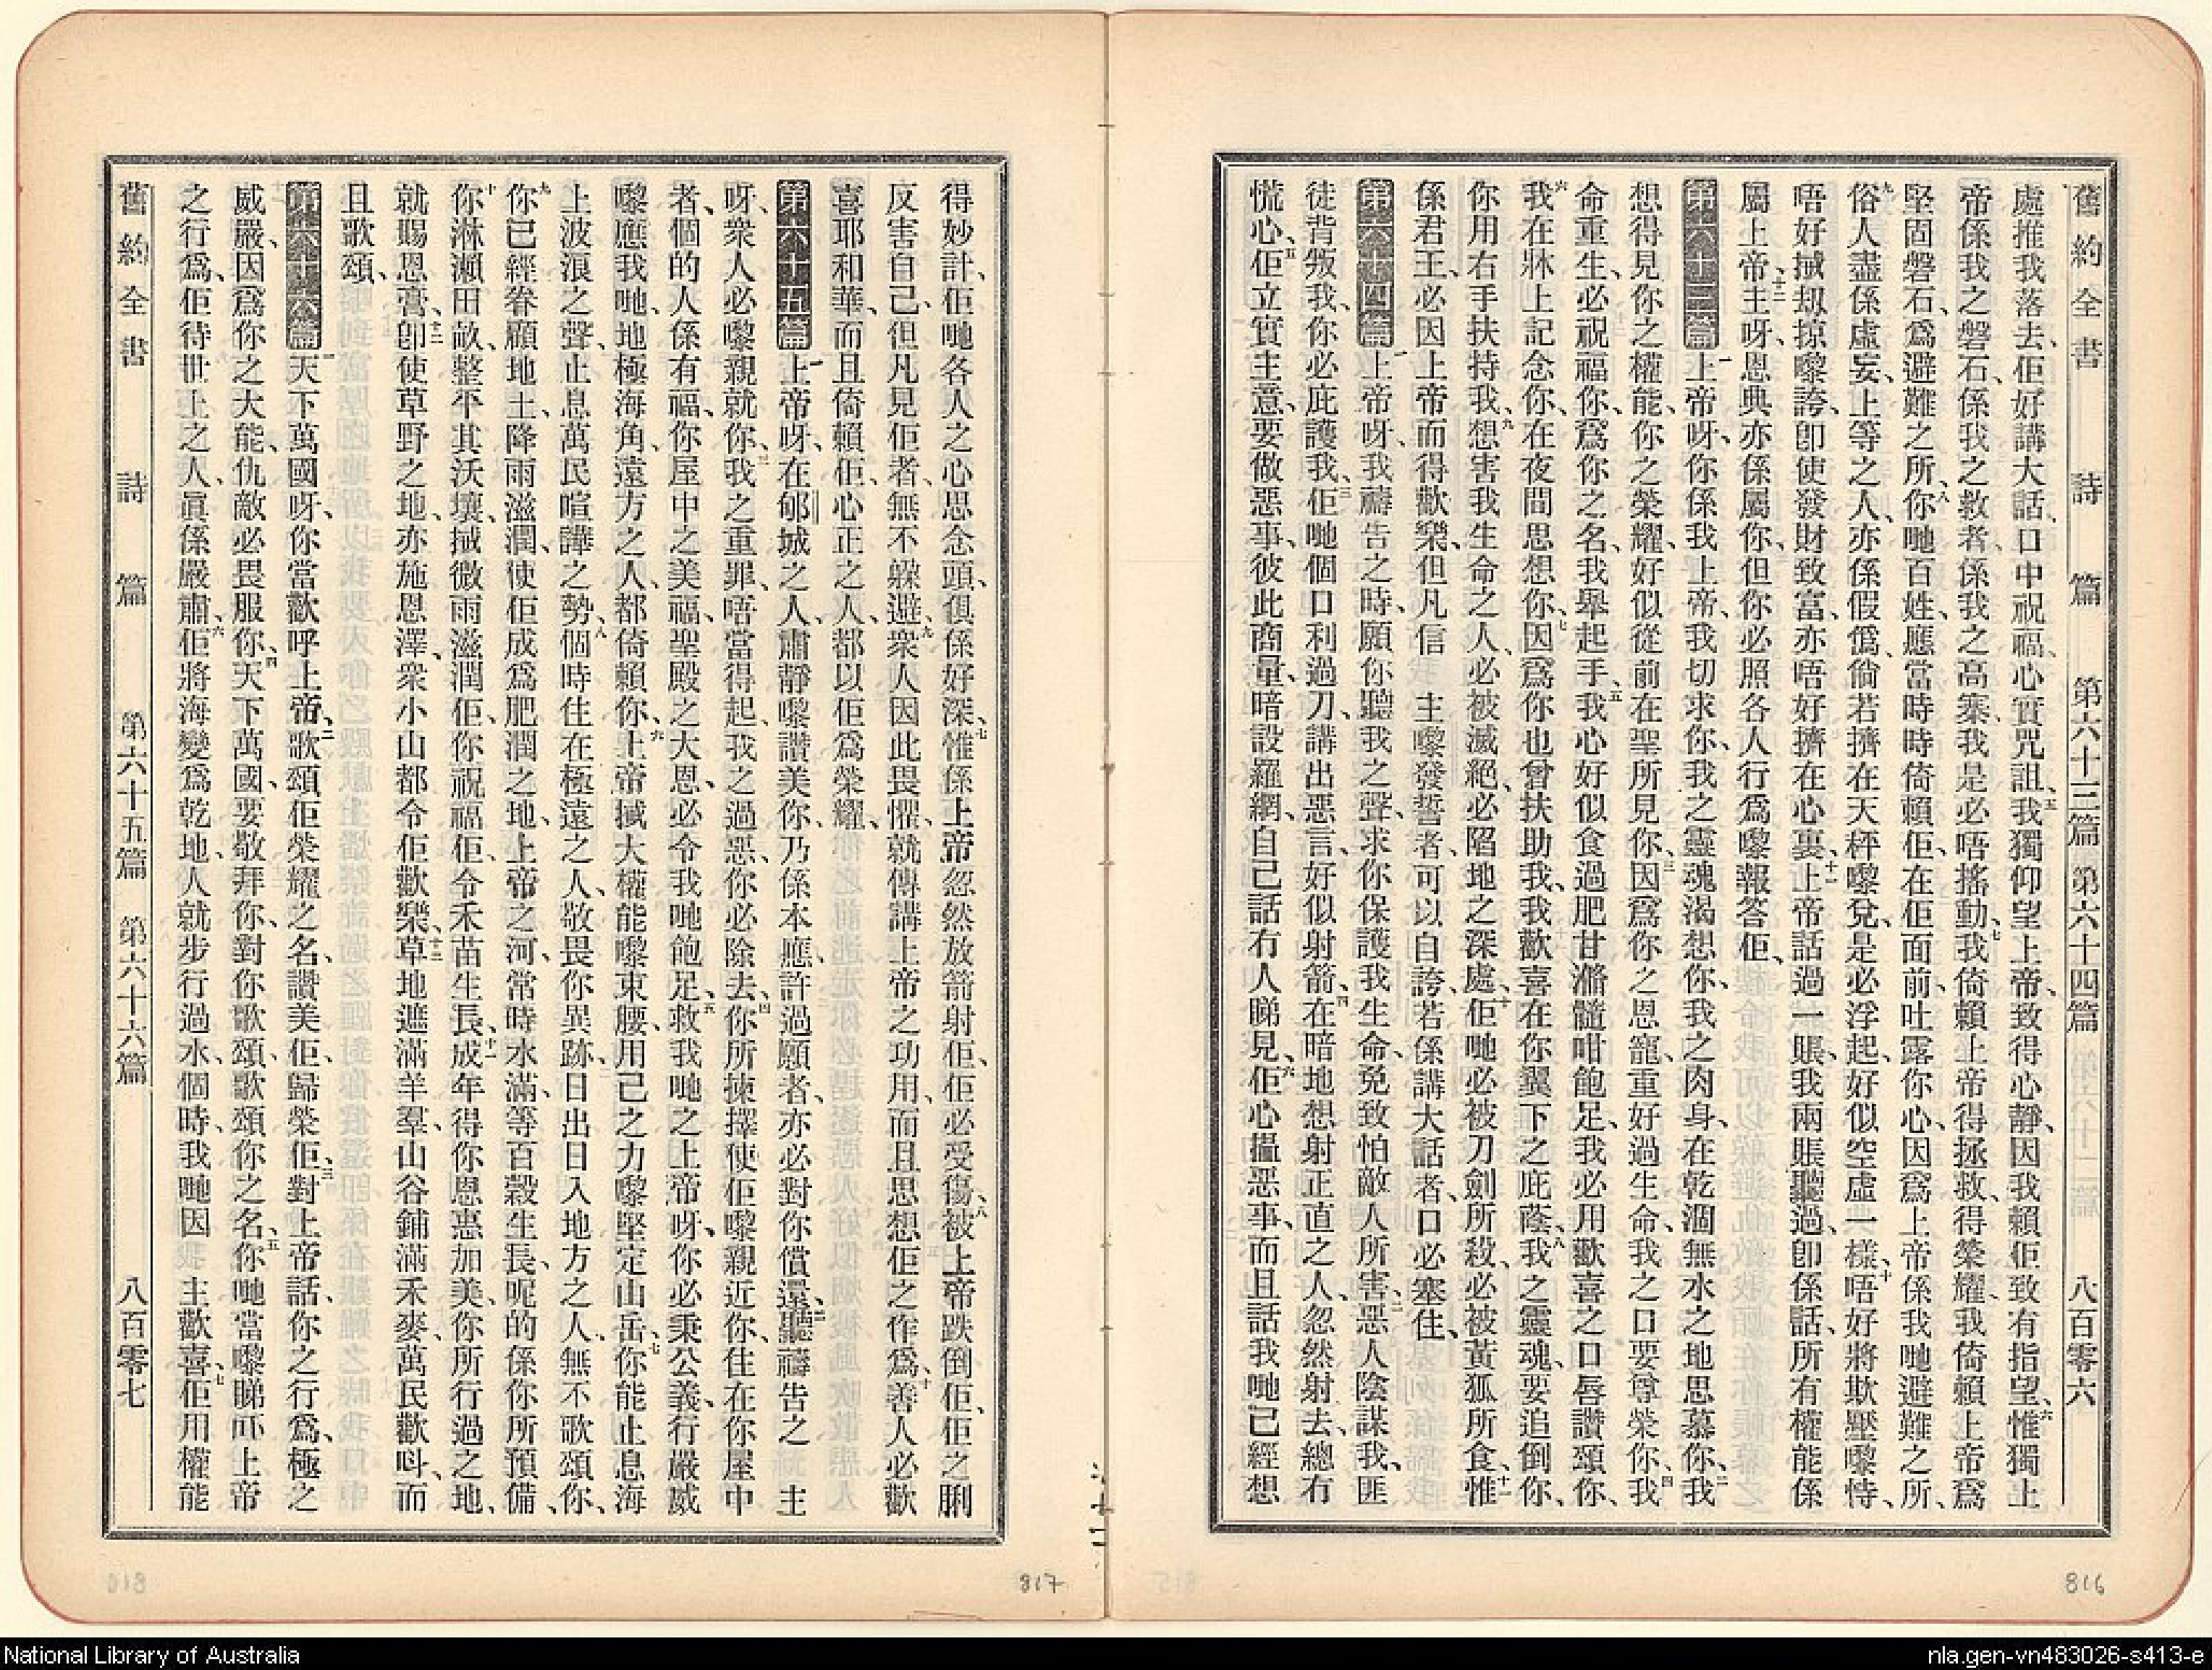 舊約全書 詩篇 第六十三篇 第六十四篇 八百零六
處推我落去、佢好講大話、口中祝福、心實咒詛、五我獨仰望上帝、致得心靜、因我賴佢致有指望、六惟獨上
帝係我之磐石、係我之救者、係我之高寨、我是必唔搖動、七我倚賴上帝得拯救、得榮耀、我倚賴上帝爲
堅固磐石、爲避難之所、八你哋百姓、應當時時倚賴佢、在佢面前吐露你心、因爲上帝係我哋避難之所、
九俗人盡係虛妄、上等之人、亦係假僞、倘若擠在天秤嚟兌、是必浮起、好似空虛一樣、十唔好將欺壓嚟恃、
唔好搣刼掠嚟誇、卽使發財致富、亦唔好擠在心裏、十一上帝話過一賬、我兩賬聽過、卽係話、所有權能係
屬上帝、十二主呀、恩典亦係屬你、但你必照各人行爲嚟報答佢、
第六十三篇 一上帝呀、你係我上帝、我切求你、我之靈魂渴想你、我之肉身、在乾涸無水之地思慕你、二我
想得見你之權能、你之榮耀、好似從前在聖所見你、三因爲你之恩寵、重好過生命、我之口要尊榮你、四我
命重生、必祝福你、爲你之名、我舉起手、五我心好似食過肥甘滫髓咁飽足、我必用歡喜之口唇讚頌你、
六我在牀上記念你、在夜間思想你、七因爲你也曾扶助我、我歡喜在你翼下之庇蔭、八我之靈魂、要追倒你、
你用右手扶持我、九想害我生命之人、必被滅絕、必陷地之深處、十佢哋必被刀劍所殺、必被黃狐所食、十一惟
係君王、必因上帝而得歡樂、但凡信 主嚟發誓者、可以自誇、若係講大話者、口必塞住、
第六十四篇 一上帝呀、我禱告之時、願你聽我之聲、求你保護我生命、免致怕敵人所害、二惡人陰謀我、匪
徒背叛我、你必庇護我、三佢哋個口利過刀、講出惡言、好似射箭、四在暗地想射正直之人、忽然射去、總冇
慌心、五佢立實主意、要做惡事、彼此商量、暗設羅網、自己話冇人睇見、六佢心搵惡事、而且話我哋已經想
得妙計、佢哋各人之心思念頭、俱係好深、七惟係上帝忽然放箭射佢、佢必受傷、八被上帝跌倒佢、佢之脷
反害自己、但凡見佢者、無不躱避、九衆人因此畏懼、就傳講上帝之功用、而且思想佢之作爲、十善人必歡
喜耶和華、而且倚賴佢、心正之人、都以佢爲榮耀、
第六十五篇 一上帝呀、在郇城之人、肅靜嚟讚美你、乃係本應、許過願者、亦必對你償還、二聽禱告之 主
呀、衆人必嚟親就你、三我之重罪、唔當得起、我之過惡、你必除去、四你所揀擇使佢嚟親近你、住在你屋中
者、個的人係有福、你屋中之美福、聖殿之大恩、必令我哋飽足、五救我哋之上帝呀、你必秉公義、行嚴威
嚟應我哋、地極海角、遠方之人、都倚賴你、六上帝搣大權能嚟束腰、用己之力嚟堅定山岳、七你能止息海
上波浪之聲、止息萬民喧譁之勢、八個時住在極遠之人、敬畏你異跡、日出日入地方之人、無不歌頌你、
九你已經眷顧地土、降雨滋潤、使佢成爲肥潤之地、上帝之河、常時水滿、等百穀生長、呢的係你所預備、
十你淋瀨田畝、整平其沃壤、搣微雨滋潤佢、你祝福佢、令禾苗生長、十一成年得你恩惠加美、你所行過之地、
就賜恩膏、十二卽使草野之地、亦施恩澤、衆小山都令佢歡樂、十三草地遮滿羊羣、山谷鋪滿禾麥、萬民歡呌、而
且歌頌、
第六十六篇 一天下萬國呀、你當歡呼上帝、二歌頌佢榮耀之名、讚美佢、歸榮佢、三對上帝話、你之行爲、極之
威嚴、因爲你之大能、仇敵必畏服你、四天下萬國、要敬拜你、對你歌頌、歌頌你之名、五你哋當嚟睇吓上帝
之行爲、佢待世上之人、眞係嚴肅、六佢將海變爲乾地、人就步行過水、個時、我哋因 主歡喜、七佢用權能
舊約全書 詩篇 第六十五篇 第六十六篇 八百零七
817
816
National Library of Australia
nla.gen-vn483026-s413-e